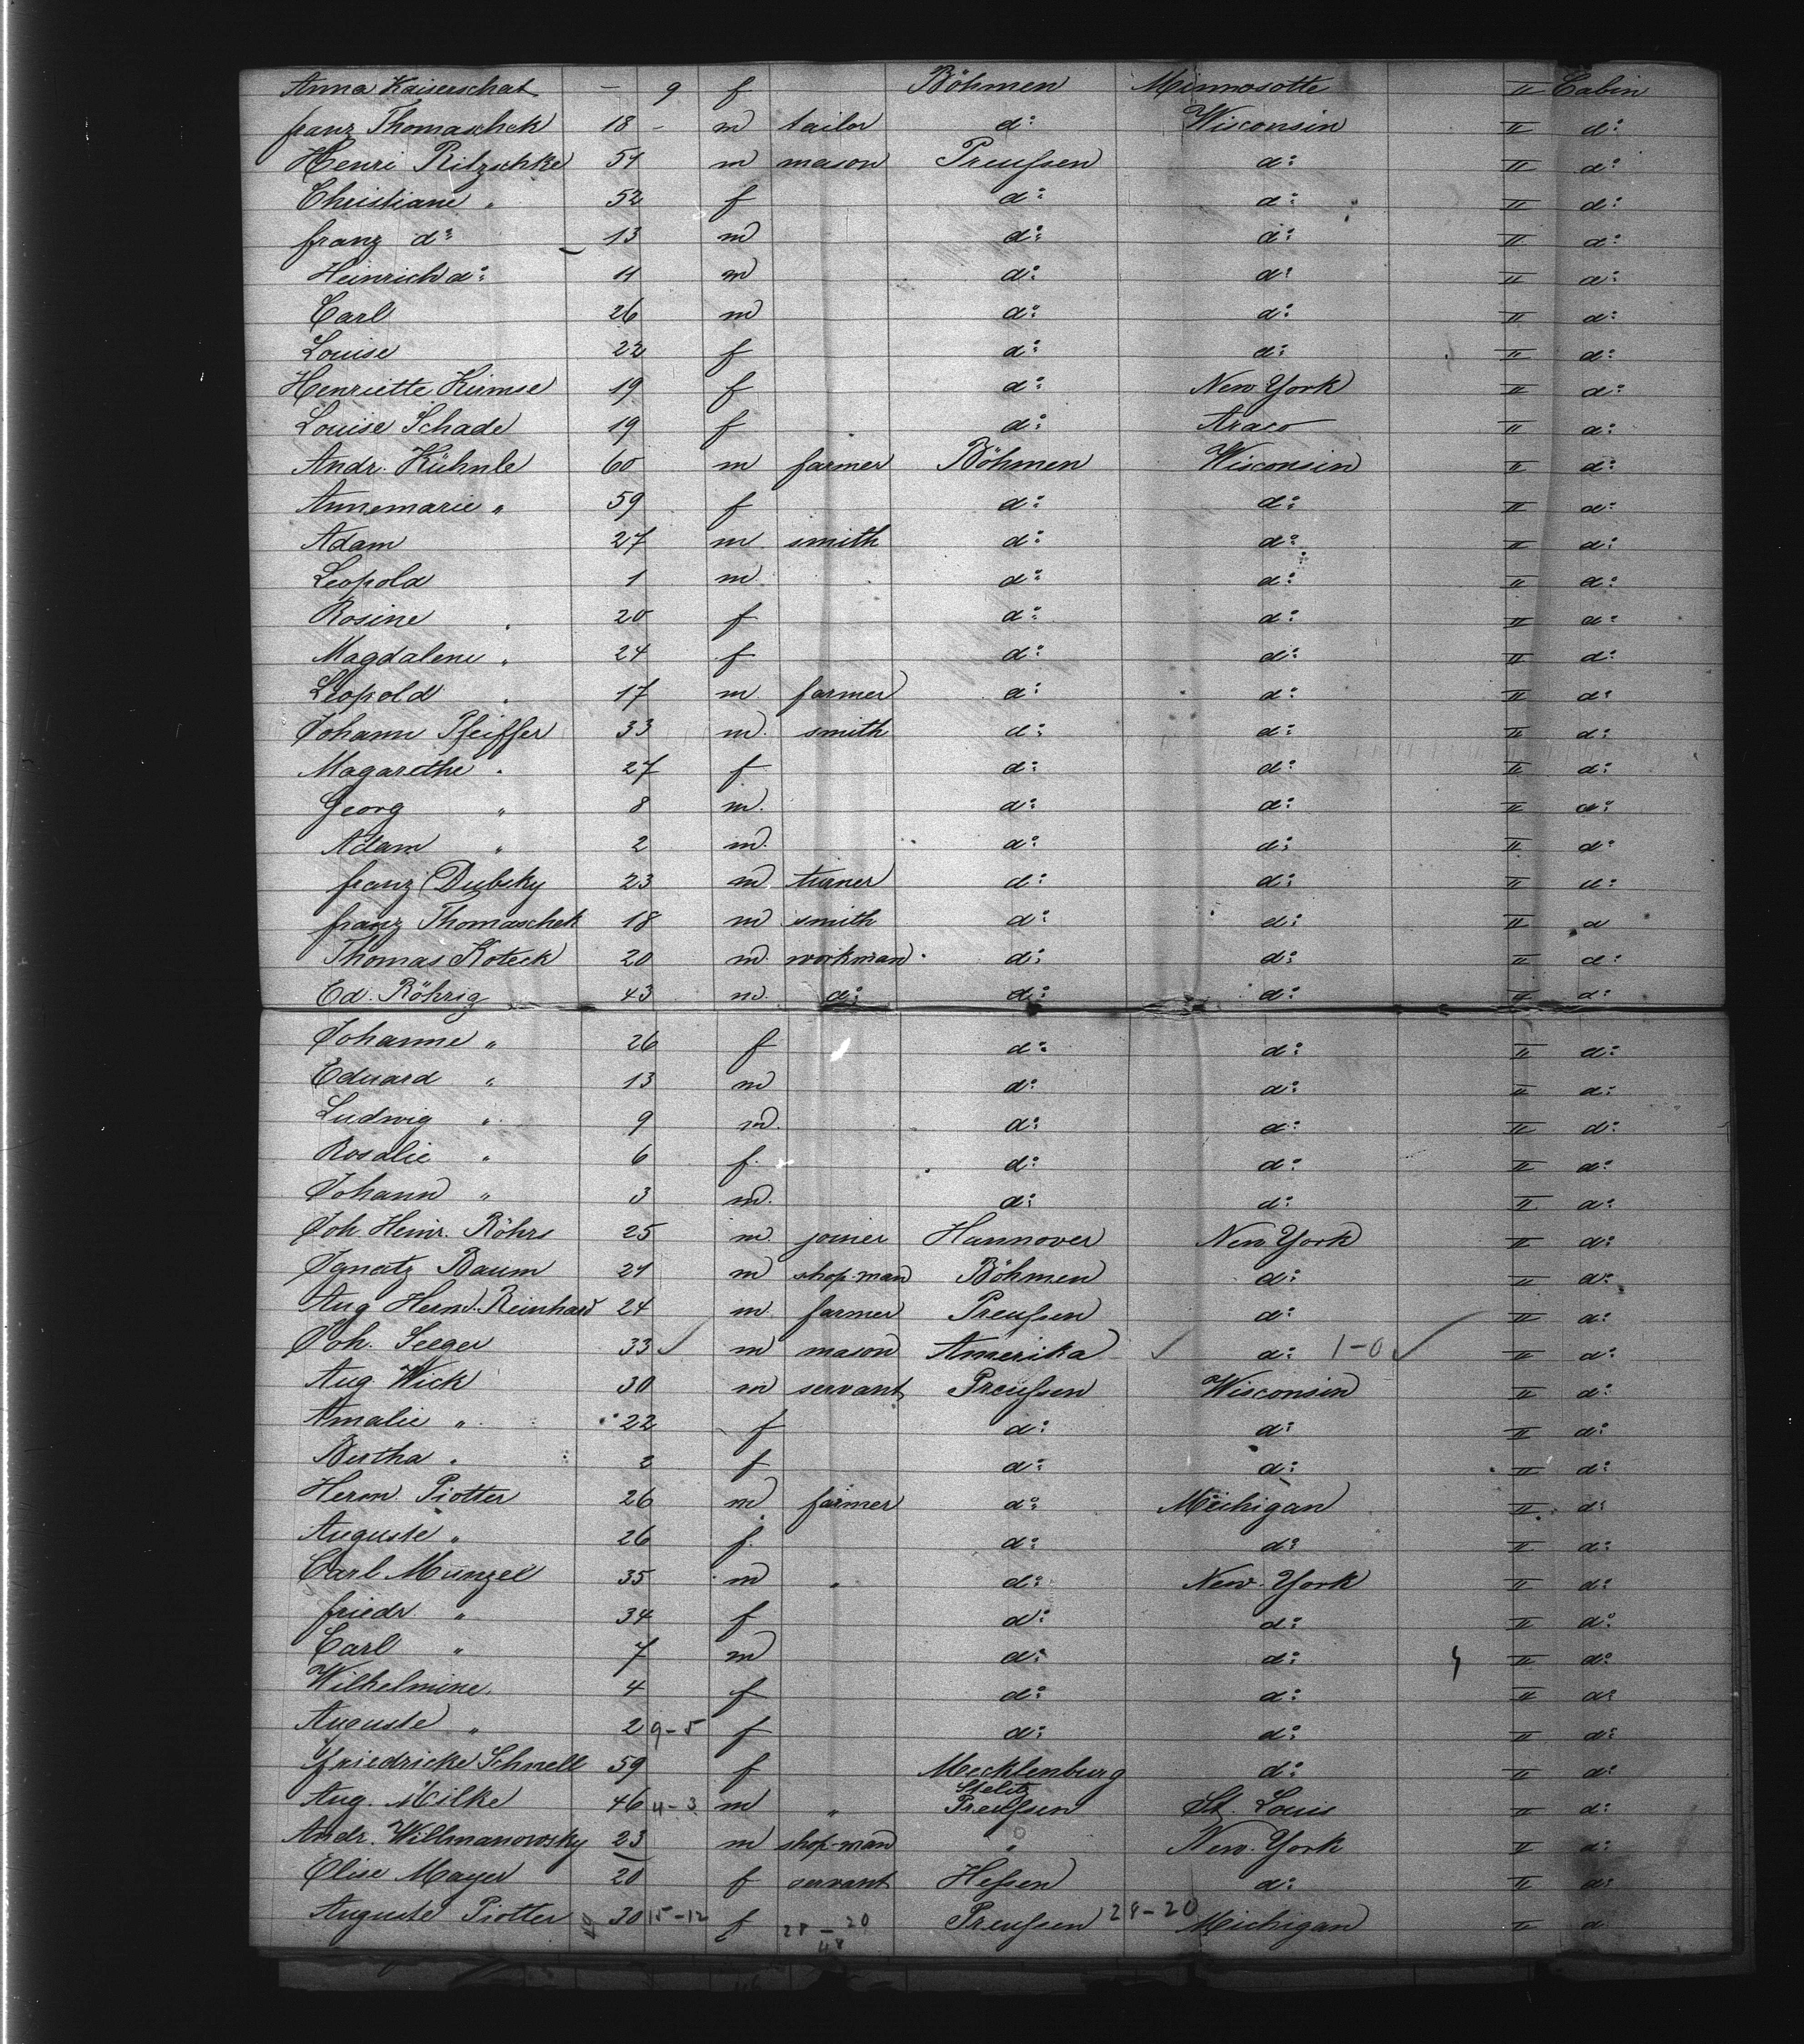 Anna Kaiserschat – 9 f Böhmen Minnosotte II Cabin
franz Thomaschek 18 – m tailor d: Wisconsin II d:
Henri Ritzschke 51 m mason Preußen d: II d:
Christiane " 52 f d: d: II d:
franz d: 13 m d: d: II d:
Heinrich d: 11 m d: d: II d:
Carl 26 m d: d: II d:
Louise 22 f d: d: II d:
Henriette Kumse 19 f d: New York II d:
Louise Schade 19 f d: II d:
Andr. Kühnle 60 m farmer Böhmen Wisconsin II d:
Annemarie " 59 f d: d: II d:
Adam 27 m smith d: d: II d:
Leopold 1 m d: d: II d:
Rosine 20 f d: d: II d:
Magdalene " 24 f d: d: II d:
Leopold 17 m farmer d: d: II d:
Johann Pfeiffer 33 m. smith d: d: II d:
Magarethe " 27 f d: d: II d:
Georg " 8 m. d: d: II d:
Adam " 2 m. d: d: II d:
franz Dubsky 23 m turner d: d: II d:
franz Thomaschek 18 m smith d: d: II d
Thomas Koteck 20 m workman d: d: II d:
Ed. Röhrig 43 m. d: d: d: II d:
Johanne " 26 f d: d: II d:
Eduard " 13 m d: d: II d:
Ludwig " 9 m. d: d: II d:
Rosalie " 6 f. d: d: II d:
Johann " 3 m. d: d: II d:
Joh. Heinr. Röhrs 25 m. joiner Hannover New York II d:
Ignatz Baum 21 m shop-man Böhmen d: II d:
Aug Herm. Reinhard 24 m. farmer Preußen d: II d:
Joh. Seeger 33 ✓ m mason Amerika ✓ d: 1-0 ✓ II d:
Aug. Wick 30 m servant Preußen Wisconsin II d:
Amalie " 22 f d: d: II d:
Bertha " 2 f d: d: II d:
Herm. Piotter 26 m farmer d: Michigan II d:
Auguste " 26 f. d: d: II d:
Carl Munzel 35 m " d: New-York II d:
friedr " 34 f d: d: II d:
Carl " 7 m d: d: II d:
Wilhelmine 4 f d: d: II d:
Auguste " 2 9-5 f d: d: II d:
friedricke Schnell 59 f Mecklenburg d: II d:
Strelitz
Aug. Milke 46 4-3 m " Preußen St. Louis II d:
Andr. Willmanowsky 23 m shop-man " New-York II d:
Elise Mayer 20 f servant Heßen d: II d:
Auguste Piotter 30 15-12 f 28-20 Preußen 28-20 Michigan II d
48